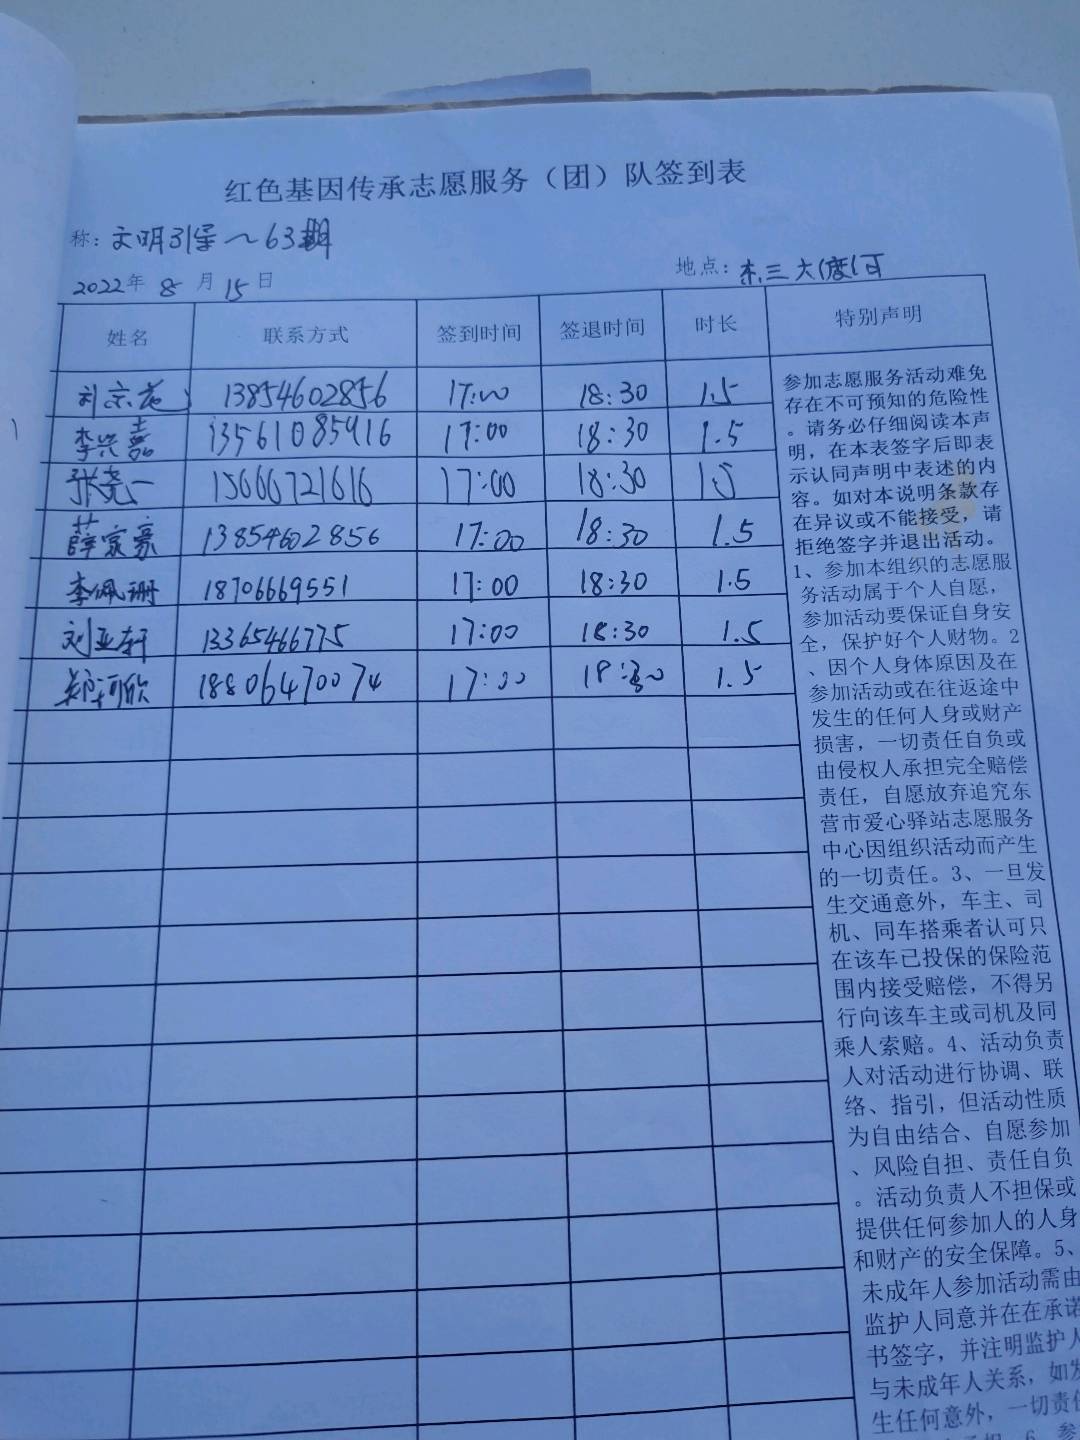 红色基因传承志愿服务（团）队签到表
称：文明引导～63期
2022年 8 月 15 日 地点：东三大(度)可
姓名 联系方式 签到时间 签退时间 时长 特别声明
刘宗 13854602856 17:00 18:30 1.5
李兴嘉 13561085916 17:00 18:30 1.5
张尧一 15666721616 17:00 18:30 1.5
薛家豪 13854602856 17:00 18:30 1.5
李佩珊 18706669551 17:00 18:30 1.5
刘亚轩 13365466775 17:00 18:30 1.5
郑可欣 18806470074 17:00 18:30 1.5
参加志愿服务活动难免
存在不可预知的危险性
。请务必仔细阅读本声
明，在本表签字后即表
示认同声明中表述的内
容。如对本说明条款存
在异议或不能接受，请
拒绝签字并退出活动。
1、参加本组织的志愿服
务活动属于个人自愿，
参加活动要保证自身安
全，保护好个人财物。2
、因个人身体原因及在
参加活动或在往返途中
发生的任何人身或财产
损害，一切责任自负或
由侵权人承担完全赔偿
责任，自愿放弃追究东
营市爱心驿站志愿服务
中心因组织活动而产生
的一切责任。3、一旦发
生交通意外，车主、司
机、同车搭乘者认可只
在该车已投保的保险范
围内接受赔偿，不得另
行向该车主或司机及同
乘人索赔。4、活动负责
人对活动进行协调、联
络、指引，但活动性质
为自由结合、自愿参加
、风险自担、责任自负
。活动负责人不担保或
提供任何参加人的人身
和财产的安全保障。5、
未成年人参加活动需由
监护人同意并在在承诺
书签字，并注明监护人
与未成年人关系，如发
生任何意外，一切责任